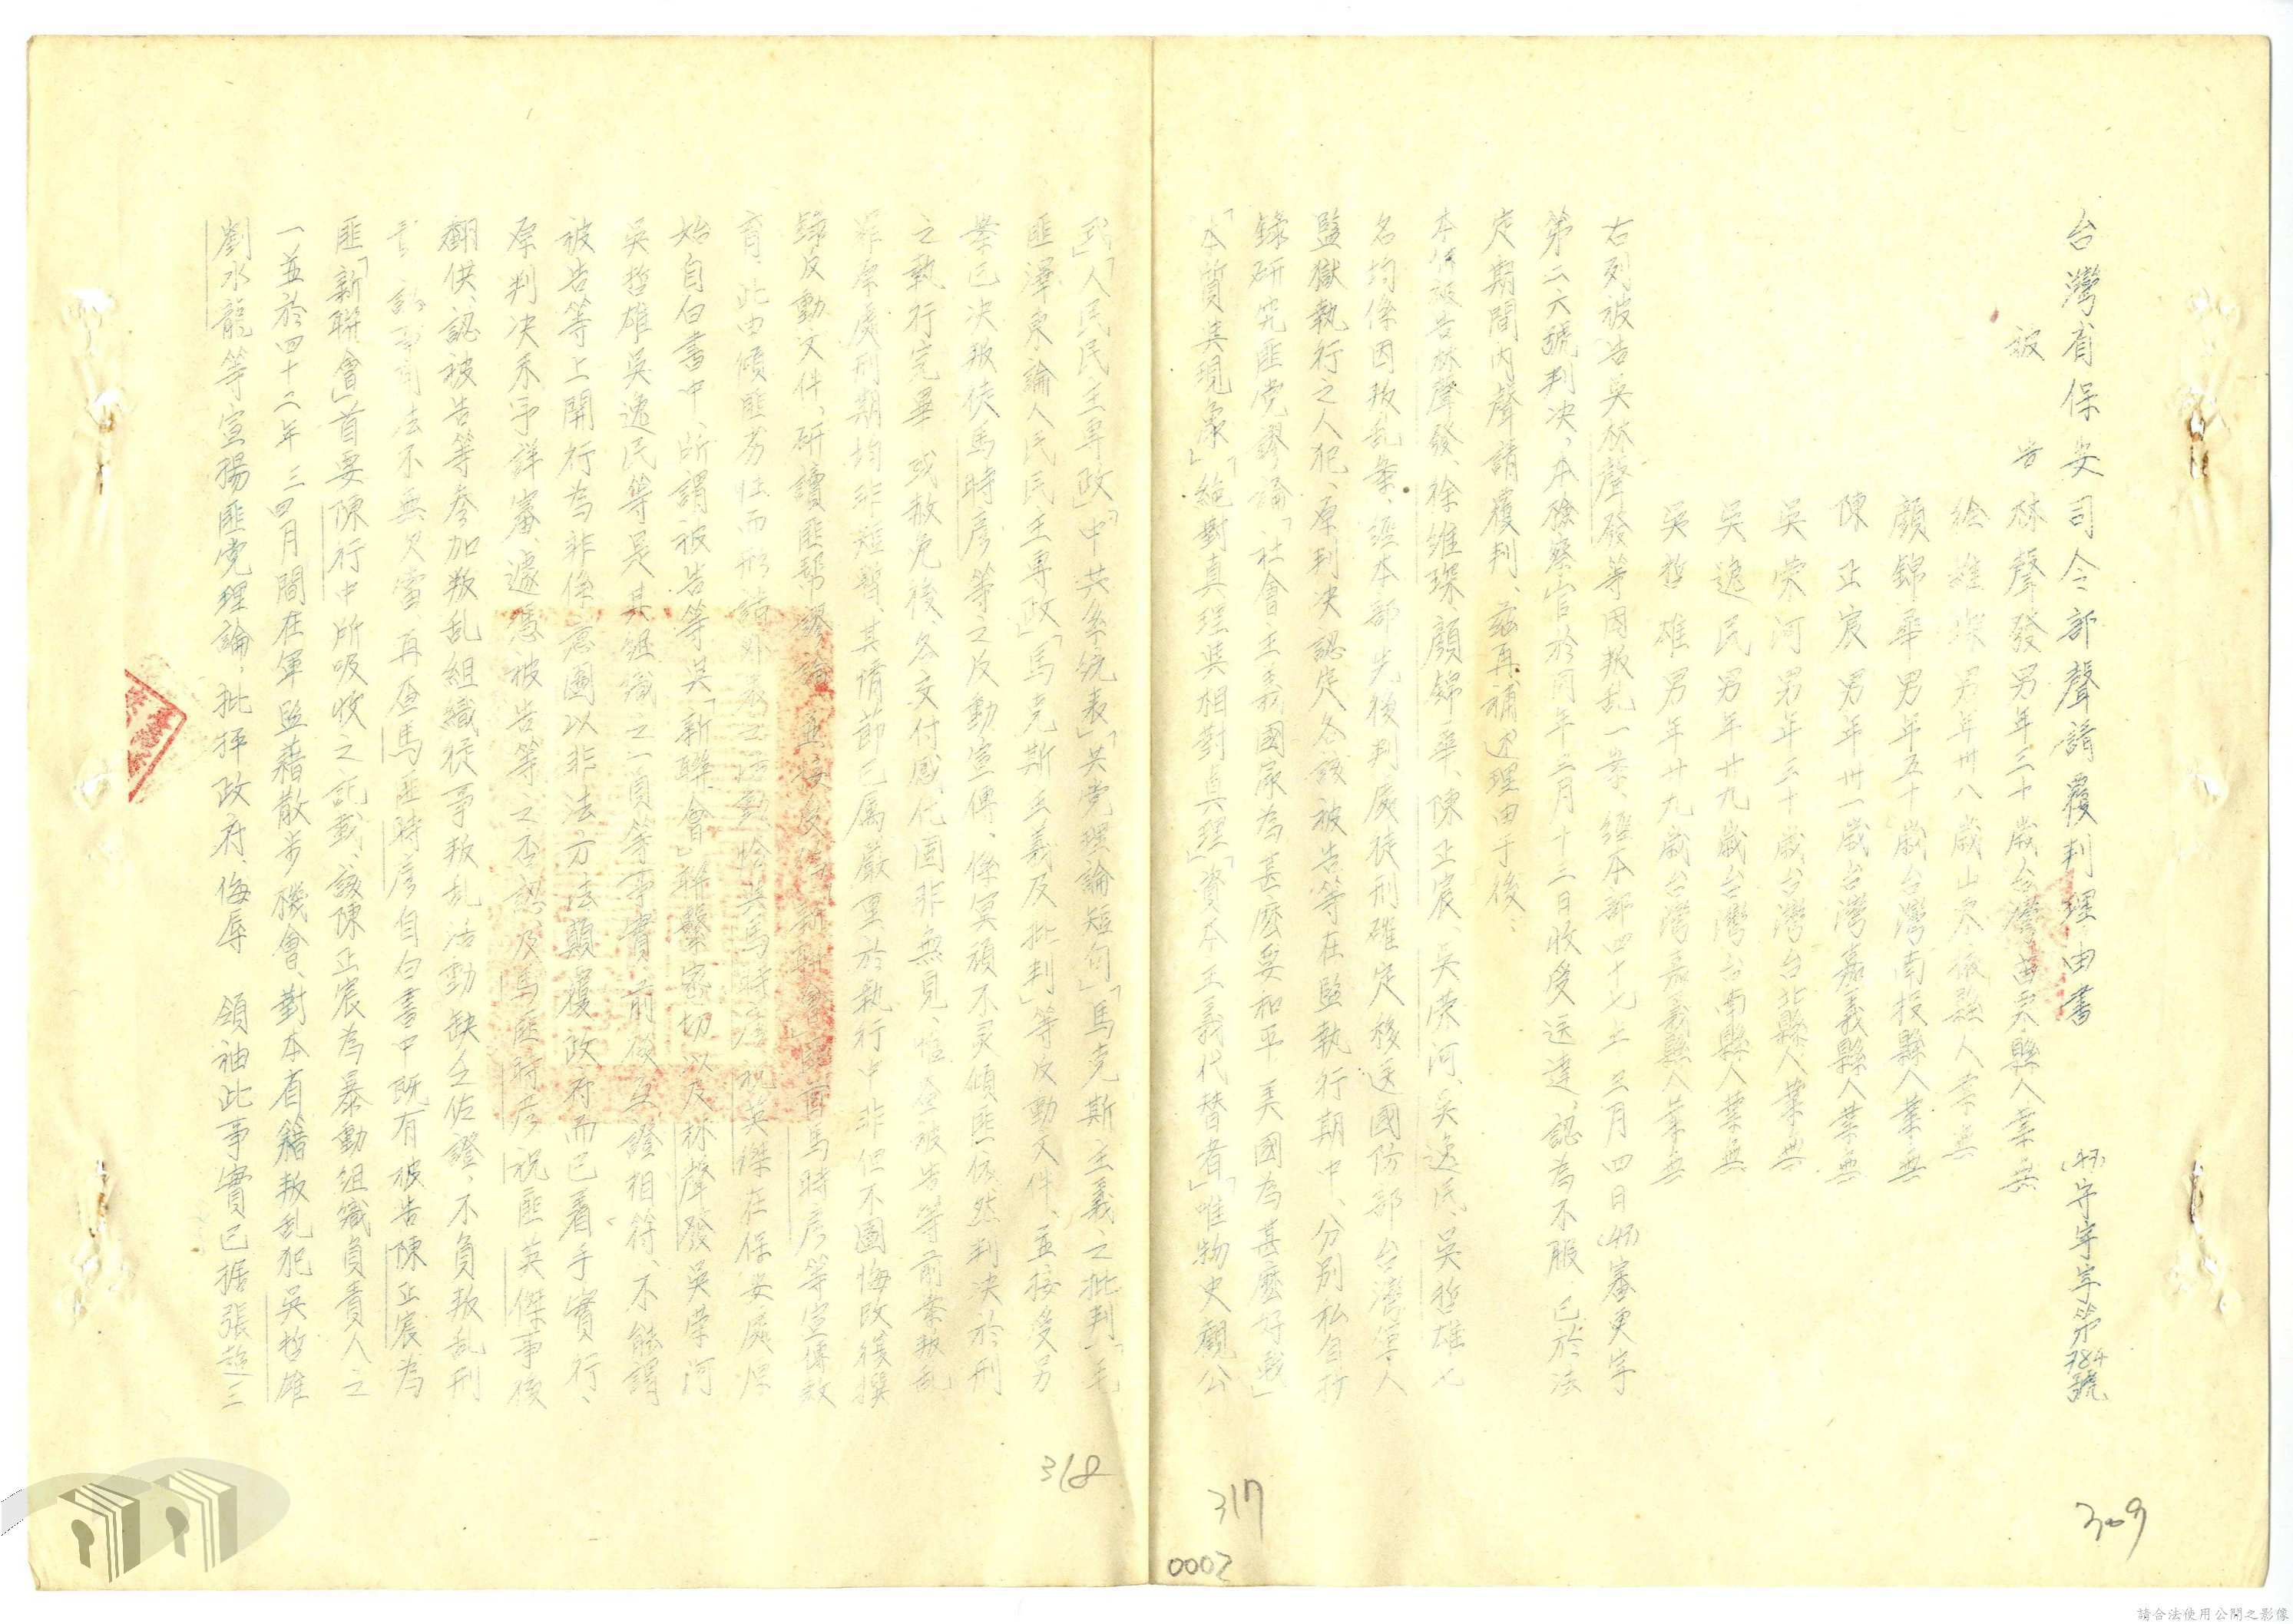 台灣省保安司令部聲請覆判理由書
(47)守宇字第784號
被告 林聲發 男年三十歲台灣苗栗縣人業無
徐維琛 男年卅八歲山東掖縣人業無
顏錦華 男年五十歲台灣南投縣人業無
陳正宸 男年卅一歲台灣嘉義縣人業無
吳榮河 男年三十歲台灣台北縣人業無
吳逸民 男年廿九歲台灣台南縣人業無
吳哲雄 男年廿九歲台灣嘉義縣人業無
右列被告吳林聲發等因叛乱一案、經本部四十七年三月四日(47)審更字
第二六號判决、本檢察官於同年三月十三日收受送達、認為不服、已於法
定期間內聲請覆判、茲再補述理由于後：
本件被告林聲發、徐維琛、顏錦華、陳正宸、吳榮河、吳逸民、吳哲雄七
名均係因叛乱案、經本部先後判處徒刑確定移送國防部台灣軍人
監獄執行之人犯、原判决認定各該被告等在監執行期中、分別私自抄
錄研究匪党謬論「社會主義國家為甚麼要和平美國為甚麼好戰」
「本質與現象」「絕對真理與相對真理」「資本主義代替者」「唯物史觀公
式」「人民民主專政」「中共系統表」「共党理論短句」「馬克斯主義之批判」「毛
匪澤東論人民民主專政」「馬克斯主義及批判」等反動文件、並接受另
案已决叛徒馬時彥等之反動宣傳、係冥頑不灵傾匪依然判决於刑
之執行完畢或赦免後、各交付感化固非無見、惟查被告等前案叛乱
罪原處刑期均非短暫、其情節已屬嚴重、於執行中非但不圖悔改復撰
錄反動文件、研讀匪幫謬論、並接受匪「新聯會」匪首馬時彥等宣傳教
育、此由傾匪芬狂而形諸外表之活動、恰與馬時彥祝英傑在保安處原
始自白書中、所謂被告等與「新聯會」聯繫密切以及林聲發吳榮河
吳哲雄吳逸民等是其組織之一員等事實、前後互證相符、不能謂
被告等上開行為非係意圖以非法方法顛覆政府而已着手實行、
原判决未予詳審、遽憑被告等之否認、及馬匪時彥祝匪英傑事後
翻供、認被告等參加叛乱組織從事叛乱活動缺乏佐證、不負叛乱刑
責、認事用法不無欠當、再查馬匪時彥自白書中既有被告陳正宸為
匪「新聯會」首要陳行中所吸收之記載、該陳正宸為暴動組織負責人之
一並於四十二年三四月間在軍監藉散步機會、對本省籍叛乱犯吳哲雄
劉水龍等宣揚匪党理論、批抨政府、侮辱 領袖此事實已据張超三
309
317
318
0002
請合法使用公開之影像